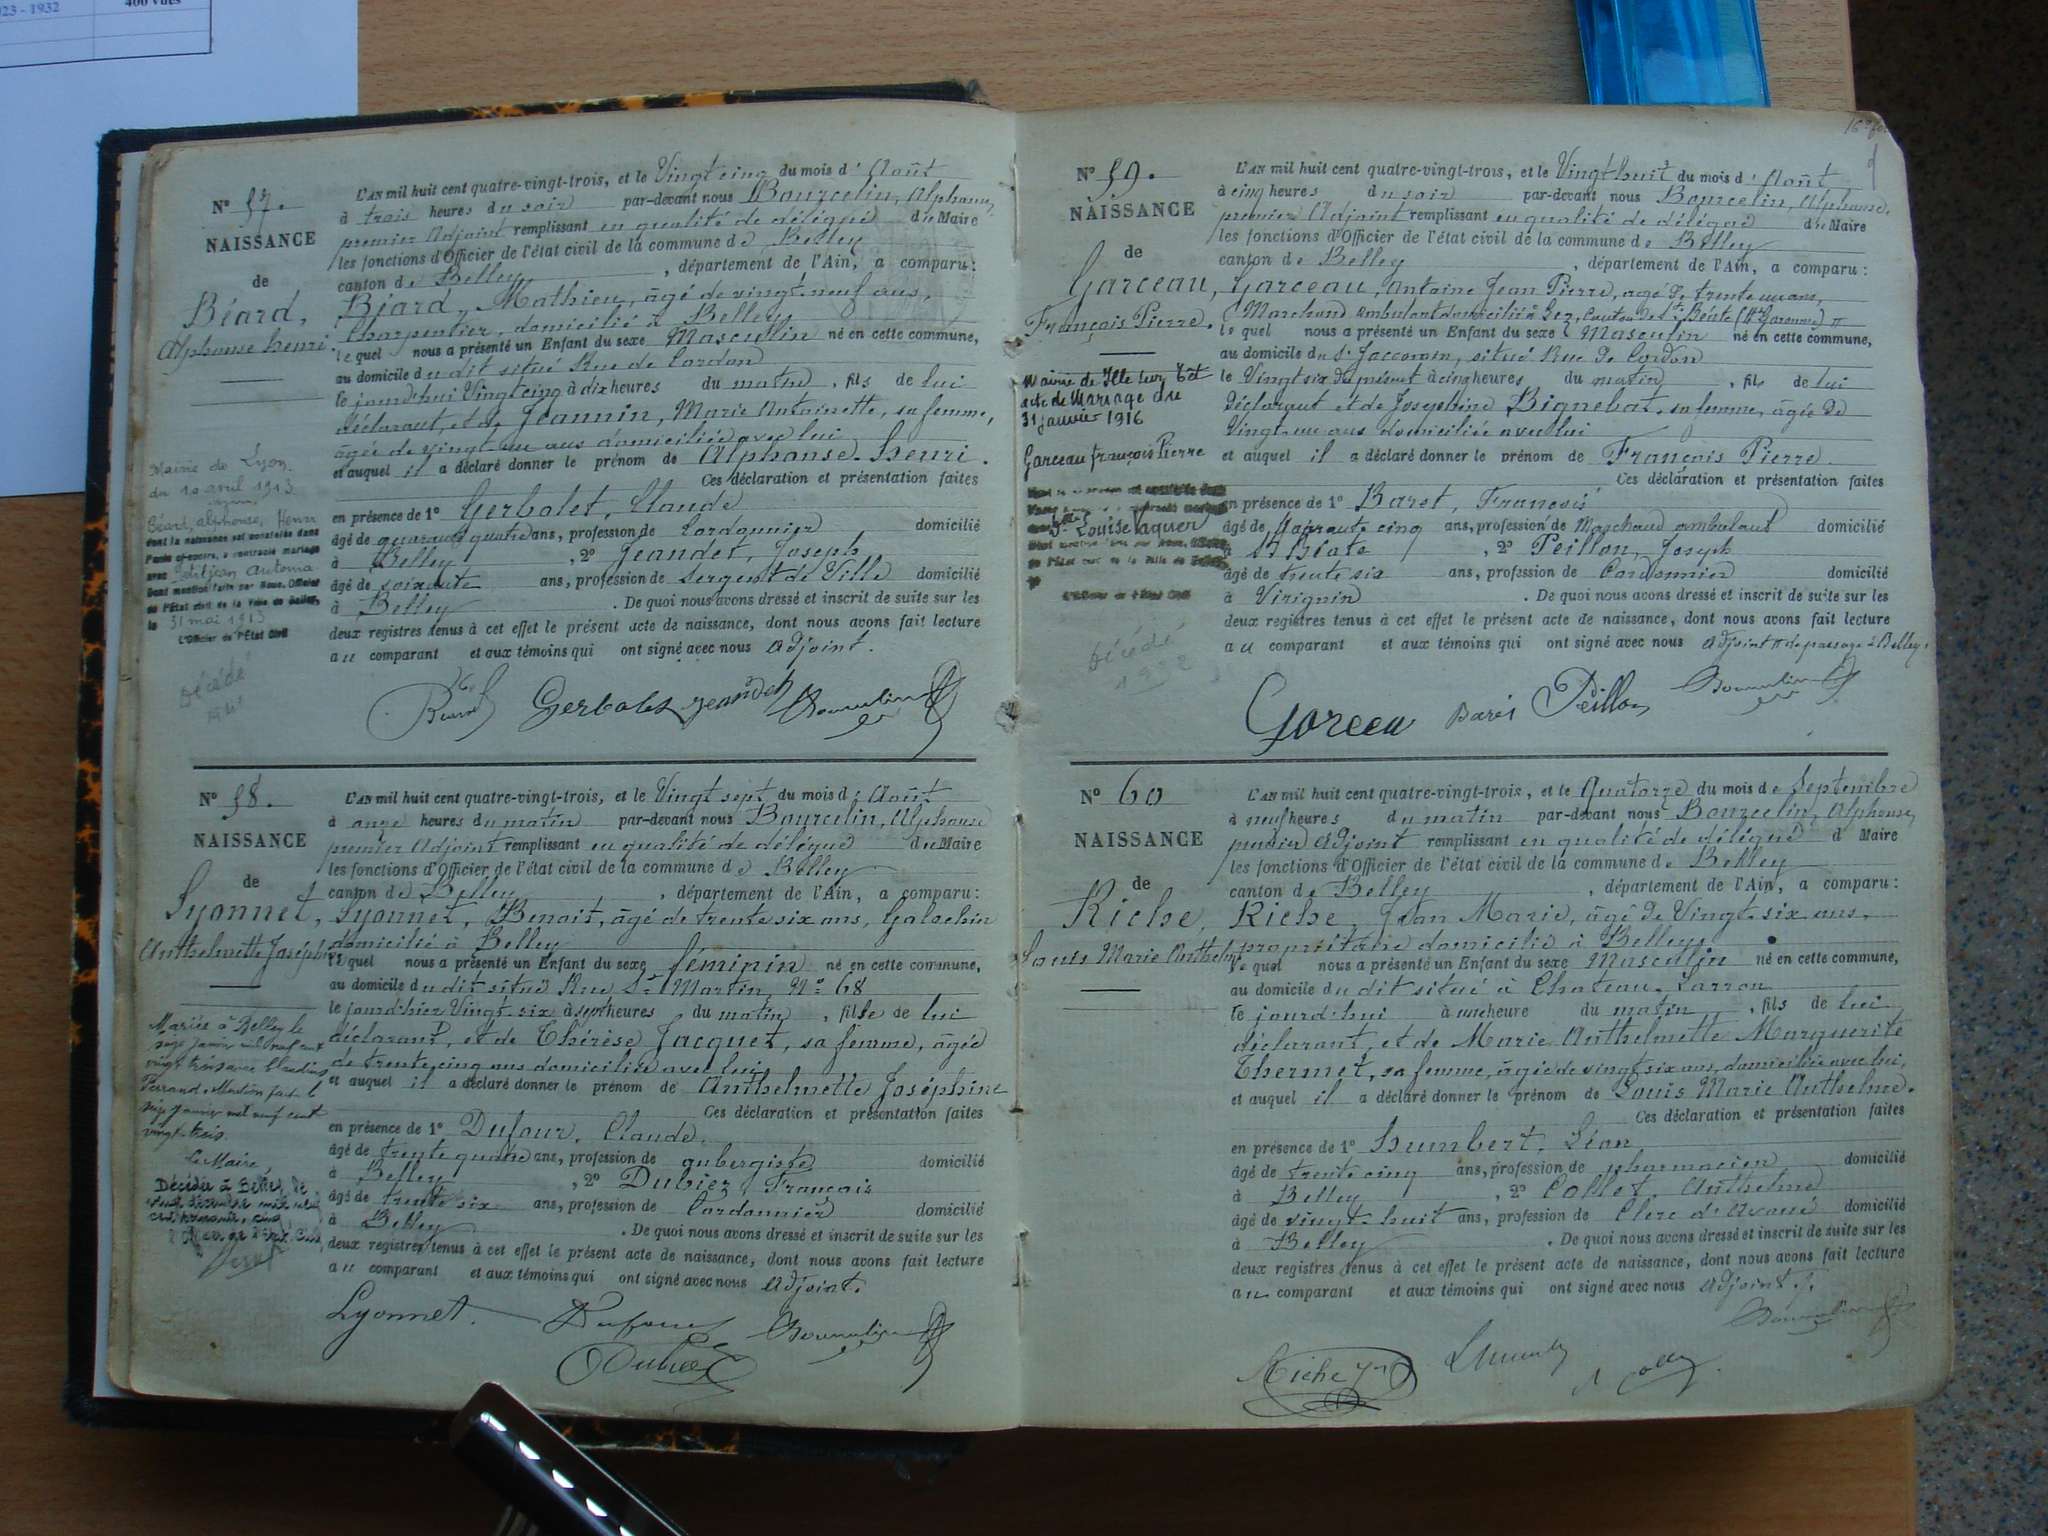 923 - 1932
400 vues
N° 57.
NAISSANCE
de
Béard,
Alphonse henri
L'AN mil huit cent quatre-vingt-trois, et le Vingt cinq du mois d'Août
à trois heures du soir par-devant nous Bourcelin, Alphonse,
premier Adjoint remplissant en qualité de délégué du Maire
les fonctions d'Officier de l'état civil de la commune de Belley
canton de Belley, département de l'Ain, a comparu :
Béard, Mathieu, âgé de vingt-neuf ans,
Charpentier, domicilié à Belley
le quel nous a présenté un Enfant du sexe Masculin né en cette commune,
au domicile du dit situé Rue de Cordon
le jourd'hui Vingt cinq à dix heures du matin, fils de lui
déclarant, et de Jeannin, Marie Antoinette, sa femme,
âgée de vingt un ans domiciliée avec lui
et auquel il a déclaré donner le prénom de Alphonse-Henri.
Ces déclaration et présentation faites
en présence de 1° Gerbolet, Claude
âgé de quarante quatre ans, profession de Cordonnier domicilié
à Belley, 2° Jeandet, Joseph
âgé de soixante ans, profession de Sergent de Ville domicilié
à Belley. De quoi nous avons dressé et inscrit de suite sur les
deux registres tenus à cet effet le présent acte de naissance, dont nous avons fait lecture
au comparant et aux témoins qui ont signé avec nous Adjoint.
Mairie de Lyon
du 10 avril 1913
Béard, alphonse, Henri
dont la naissance est constatée dans
l'acte ci-contre, a contracté mariage
avec Petitjean
Dont mention faite par Nous, Officier
de l'État civil de la Ville de Belley,
le 31 mai 1913
L'Officier de l'État Civil
Décédé
Gerbolet Jeandet Bourcelin
N° 58.
NAISSANCE
de
Lyonnet,
Anthelmette Joséphine
L'AN mil huit cent quatre-vingt-trois, et le Vingt sept du mois d'Août
à onze heures du matin par-devant nous Bourcelin, Alphonse
premier Adjoint remplissant en qualité de délégué du Maire
les fonctions d'Officier de l'état civil de la commune de Belley
canton de Belley, département de l'Ain, a comparu :
Lyonnet, Benoit, âgé de trente six ans, Galochin
domicilié à Belley
le quel nous a présenté un Enfant du sexe féminin né en cette commune,
au domicile du dit situé Rue St Martin, N° 68
le jourd'hier Vingt-six à sept heures du matin, fille de lui
déclarant, et de Thérèse Jacquet, sa femme, âgée
de trente cinq ans domiciliée avec lui
et auquel il a déclaré donner le prénom de Anthelmette Joséphine
Ces déclaration et présentation faites
en présence de 1° Dufour, Claude,
âgé de trente quatre ans, profession de aubergiste domicilié
à Belley, 2° Dubiez, François
âgé de trente six ans, profession de Cordonnier domicilié
à Belley. De quoi nous avons dressé et inscrit de suite sur les
deux registres tenus à cet effet le présent acte de naissance, dont nous avons fait lecture
au comparant et aux témoins qui ont signé avec nous Adjoint.
Mariée à Belley le
seize janvier mil neuf cent
vingt trois avec Claudius
Perrand. Mention faite le
seize janvier mil neuf cent
vingt-trois.
Le Maire,
Décédée à Belley le
Lyonnet. Dufour Bourcelin
Dubiez
N° 59.
NAISSANCE
de
Garceau,
François Pierre.
L'AN mil huit cent quatre-vingt-trois, et le Vingt huit du mois d'Août
à cinq heures du soir par-devant nous Bourcelin, Alphonse,
premier Adjoint remplissant en qualité de délégué du Maire
les fonctions d'Officier de l'état civil de la commune de Belley
canton de Belley, département de l'Ain, a comparu :
Garceau, Antoine Jean Pierre, âgé de trente un ans,
Marchand ambulant domicilié à Lez, Canton de St Béate (Hte Garonne)
le quel nous a présenté un Enfant du sexe Masculin né en cette commune,
au domicile du Sr Jaccoram, situé Rue de Cordon
le Vingt six du présent à cinq heures du matin, fils de lui
déclarant et de Josephine Bignebat, sa femme, âgée de
Vingt-un ans domiciliée avec lui
et auquel il a déclaré donner le prénom de François Pierre
Ces déclaration et présentation faites
en présence de 1° Barès, François
âgé de quarante cinq ans, profession de Marchand ambulant domicilié
à St Béate, 2° Peillon, Joseph
âgé de trente six ans, profession de Cordonnier domicilié
à Virignin. De quoi nous avons dressé et inscrit de suite sur les
deux registres tenus à cet effet le présent acte de naissance, dont nous avons fait lecture
au comparant et aux témoins qui ont signé avec nous Adjoint // de passage à Belley.
Mairie de Ille sur Têt
acte de Mariage du
31 janvier 1916
Garceau françois Pierre
Louise Vaquer
Décédé
Garceau Barès Peillon Bourcelin
N° 60
NAISSANCE
de
Riche,
Louis Marie Anthelme
L'AN mil huit cent quatre-vingt-trois, et le Quatorze du mois de Septembre
à neuf heures du matin par-devant nous Bourcelin, Alphonse,
premier Adjoint remplissant en qualité de délégué d Maire
les fonctions d'Officier de l'état civil de la commune de Belley
canton de Belley, département de l'Ain, a comparu :
Riche, Jean Marie, âgé de Vingt-six ans,
propriétaire domicilié à Belley
le quel nous a présenté un Enfant du sexe Masculin né en cette commune,
au domicile du dit situé à Chateau-Larron
le jourd'hui à une heure du matin, fils de lui
déclarant, et de Marie Anthelmette Marguerite
Thermet, sa femme, âgée de vingt six ans, domiciliée avec lui,
et auquel il a déclaré donner le prénom de Louis Marie Anthelme.
Ces déclaration et présentation faites
en présence de 1° Humbert, Léon
âgé de trente cinq ans, profession de pharmacien domicilié
à Belley, 2° Collet, Anthelme
âgé de vingt-huit ans, profession de Clerc d'Avoué domicilié
à Belley. De quoi nous avons dressé et inscrit de suite sur les
deux registres tenus à cet effet le présent acte de naissance, dont nous avons fait lecture
au comparant et aux témoins qui ont signé avec nous Adjoint.
Bourcelin
Riche